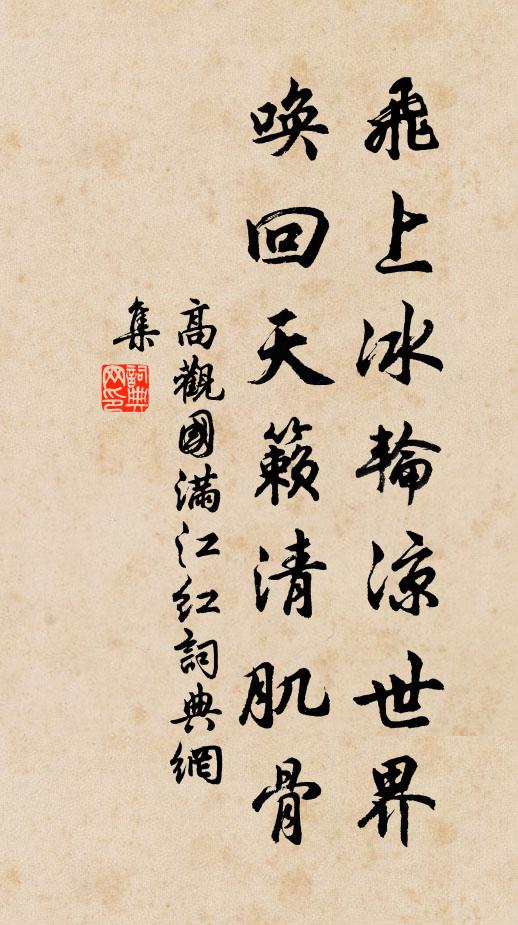 飛上冰輪涼世界
喚回天籟清肌骨
高觀國滿江紅詞典網
集
詞典網印